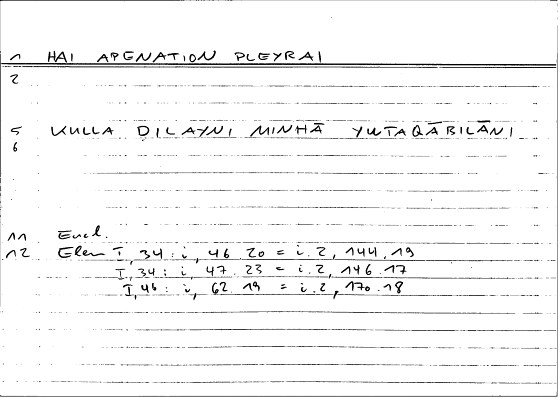 1 HAI APENATION PLEYRAI
2
5 KULLA DILAYNI MINHĀ YUTAQĀBILĀNI
6
11 Eucl.
12 Elem I, 34 : i, 46.20 = i.2, 144.19
I, 34 : i, 47.23 = i.2, 146.17
I, 46 : i, 62.19 = i.2, 170.18